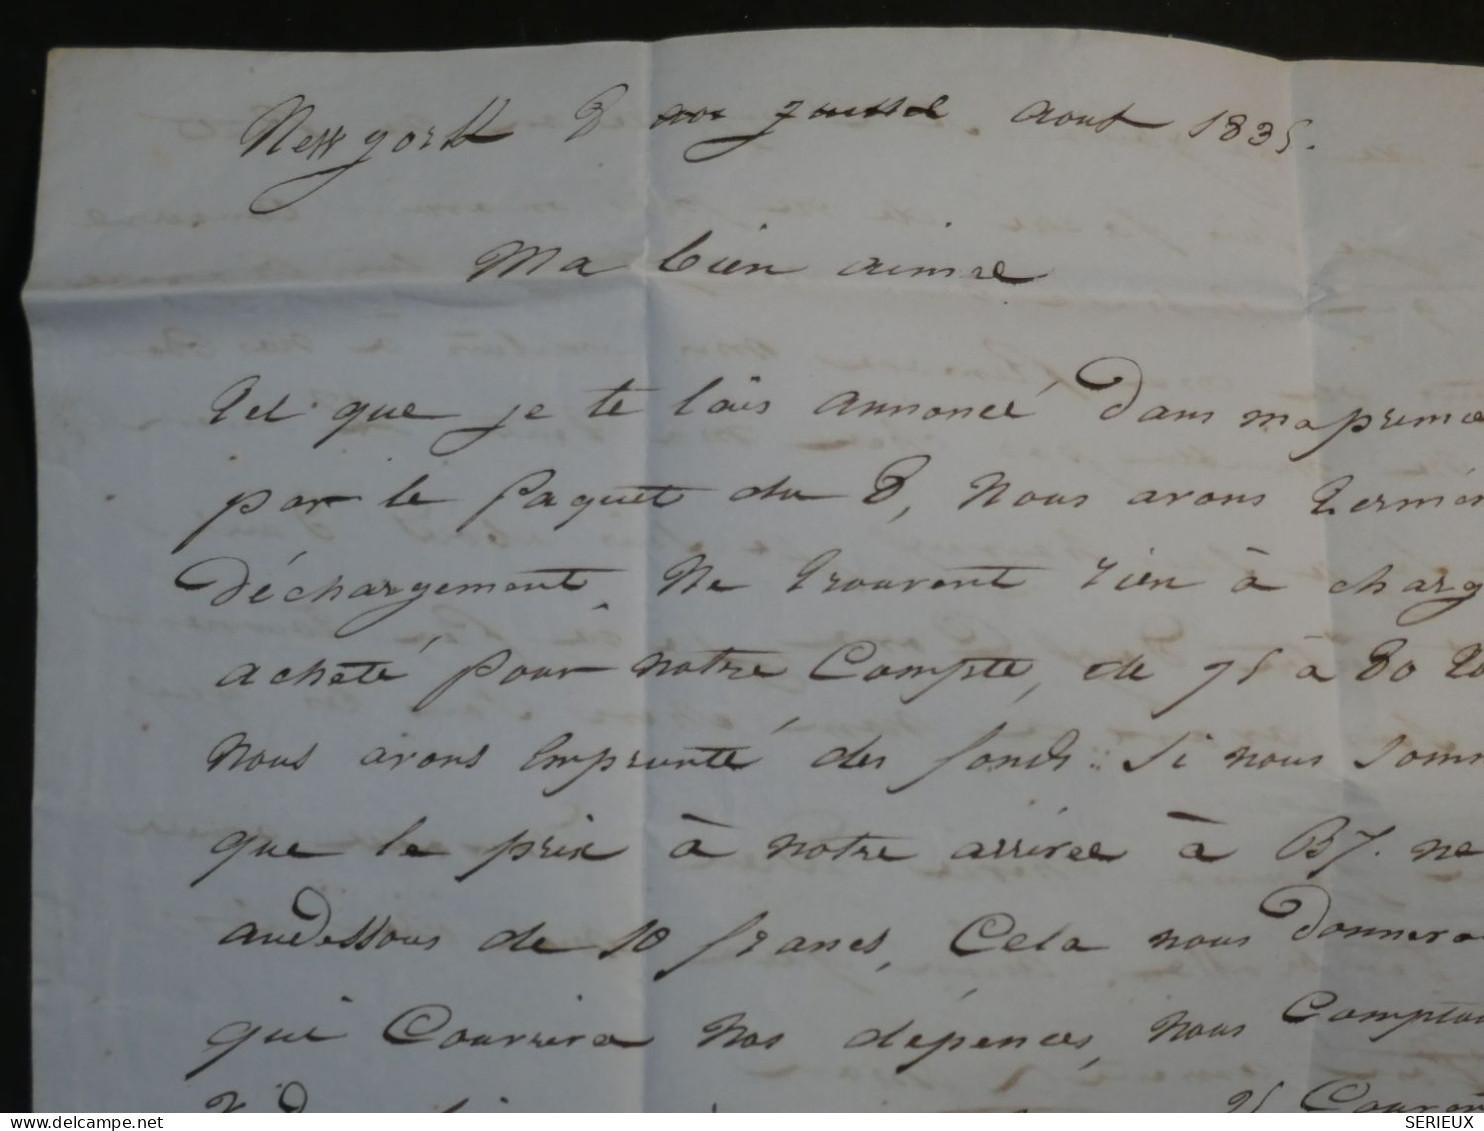 New york 8 aout 1835.
Ma bien aimée
Tel que je te l'ais annoncé dans ma premiè
par le paquet du 8, nous avons terminé
déchargement. Ne trouvent rien à charg
acheté pour notre Compte, de 75 à 80
nous avons emprunté des fonds: Si nous somm
que le prix à notre arrivée à BX. ne
audessous de 10 francs, Cela nous donnera
qui Couvrira nos dépences, nous Compton
SERIEUX